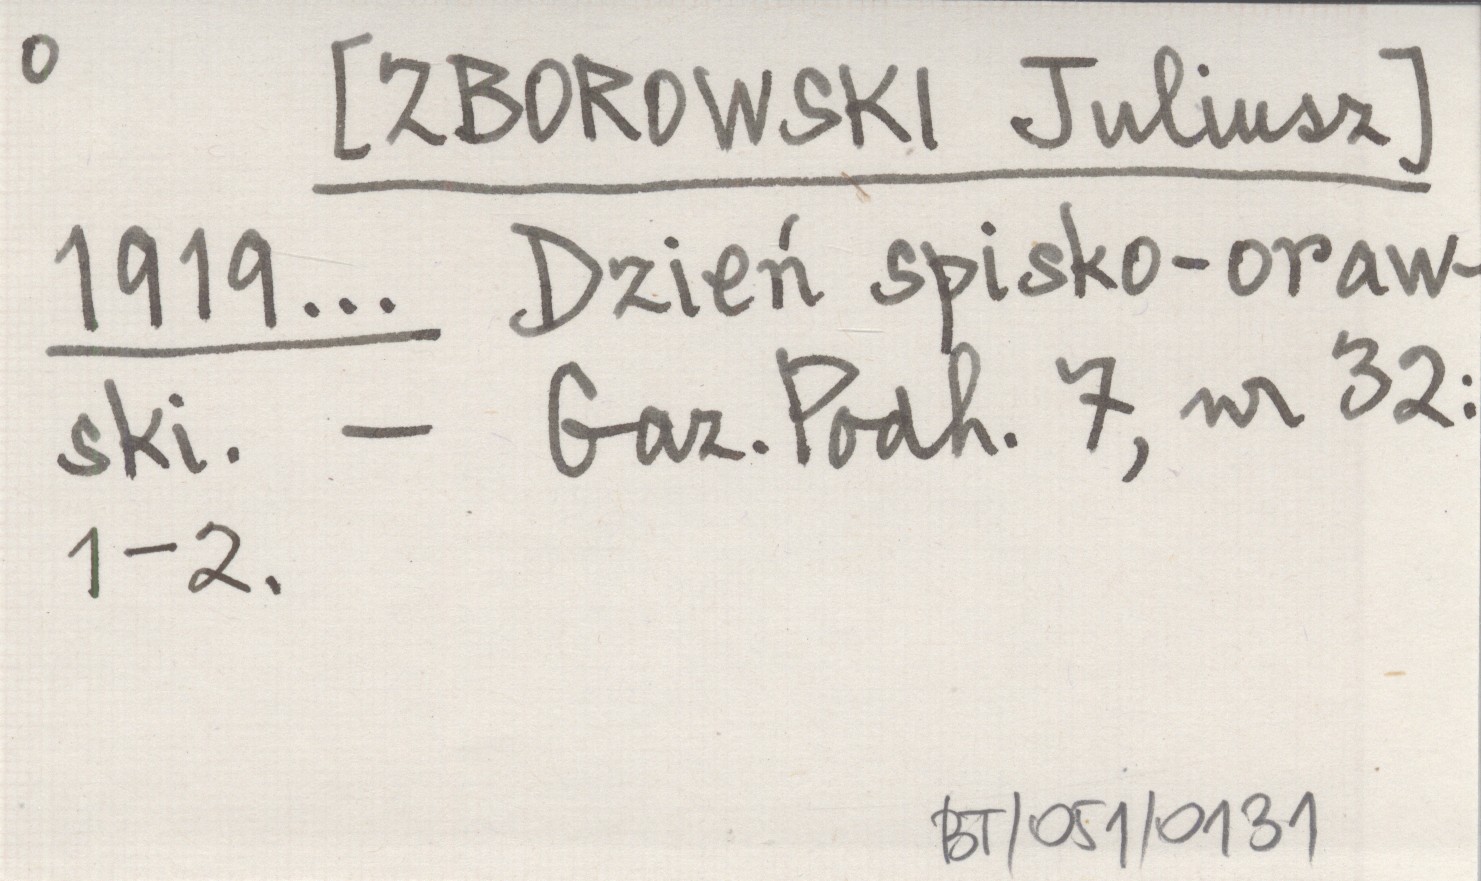 o [ZBOROWSKI Juliusz]
1919... Dzień spisko-oraw-
ski. — Gaz. Podh. 7, nr 32:
1-2.
BT/051/0131